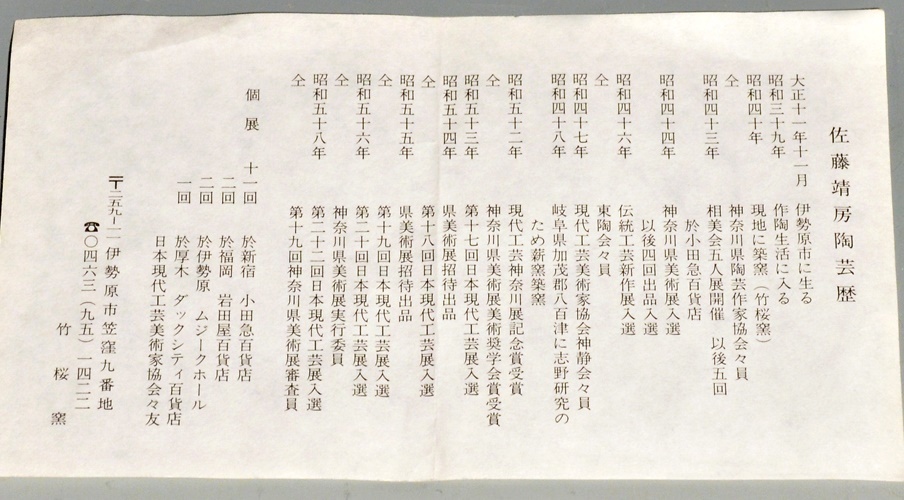 佐藤靖房陶芸歴
大正十一年十一月 伊勢原市に生る
昭和三十九年 作陶生活に入る
昭和四十年 現地に築窯（竹桜窯）
仝 神奈川県陶芸作家協会々員
昭和四十三年 相美会五人展開催 以後五回
於小田急百貨店
昭和四十四年 神奈川県美術展入選
以後四回出品入選
昭和四十六年 伝統工芸新作展入選
仝 東陶会々員
昭和四十七年 現代工芸美術家協会神静会々員
昭和四十八年 岐阜県加茂郡八百津に志野研究の
ため薪窯築窯
昭和五十二年 現代工芸神奈川展記念賞受賞
仝 神奈川県美術展美術奨学会賞受賞
昭和五十三年 第十七回日本現代工芸展入選
昭和五十四年 県美術展招待出品
仝 第十八回日本現代工芸展入選
昭和五十五年 県美術展招待出品
仝 第十九回日本現代工芸展入選
昭和五十六年 第二十回日本現代工芸展入選
仝 神奈川県美術展実行委員
昭和五十八年 第二十二回日本現代工芸展入選
仝 第十九回神奈川県美術展審査員
個展 十一回 於新宿 小田急百貨店
二回 於福岡 岩田屋百貨店
二回 於伊勢原 ムジークホール
一回 於厚木 ダックシティ百貨店
日本現代工芸美術家協会々友
〒二五九―一一 伊勢原市笠窪九番地
☎〇四六三（九五）一四二二
竹桜窯